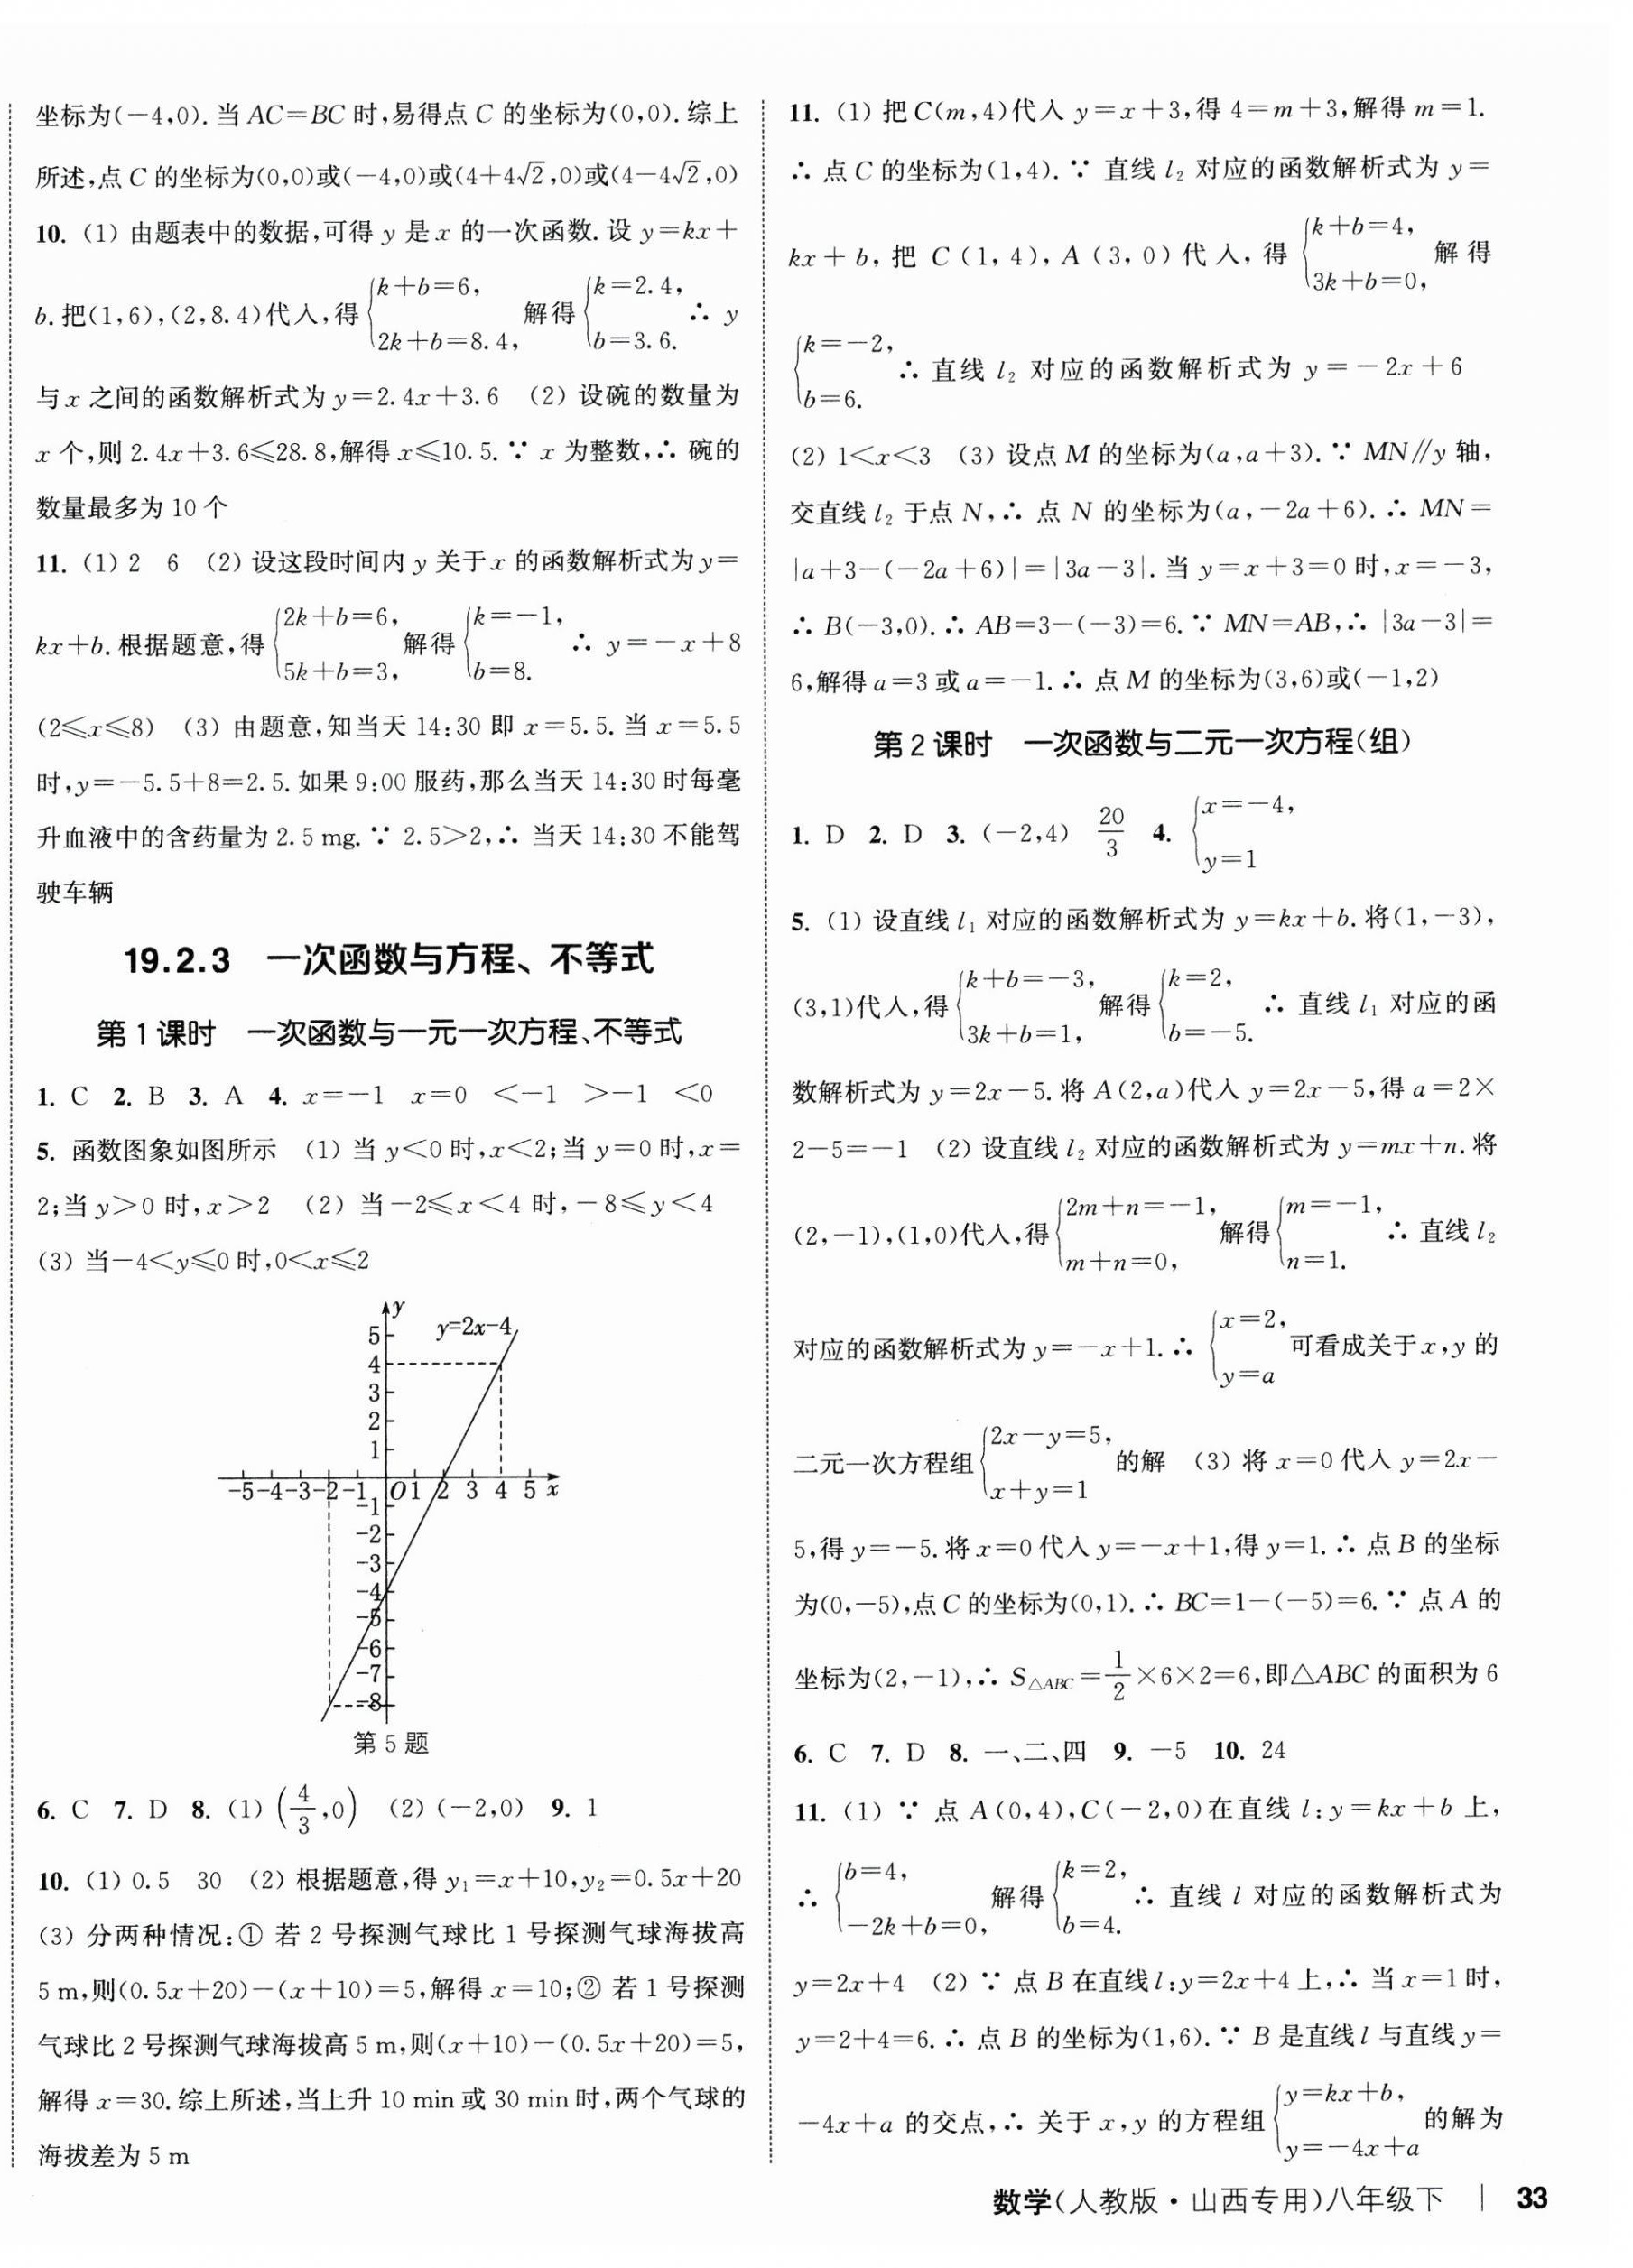 坐标为(−4,0).当AC=BC时,易得点C的坐标为(0,0).综上
所述,点C的坐标为(0,0)或(−4,0)或(4+4√2,0)或(4−4√2,0)
10. (1) 由题表中的数据,可得y是x的一次函数.设y=kx+
b.把(1,6),(2,8.4)代入,得{k+b=6, 2k+b=8.4, 解得{k=2.4, b=3.6. ∴ y
与x之间的函数解析式为y=2.4x+3.6 (2) 设碗的数量为
x个,则2.4x+3.6≤28.8,解得x≤10.5.∵ x为整数,∴ 碗的
数量最多为10个
11. (1) 2 6 (2) 设这段时间内y关于x的函数解析式为y=
kx+b.根据题意,得{2k+b=6, 5k+b=3, 解得{k=−1, b=8. ∴ y=−x+8
(2≤x≤8) (3) 由题意,知当天14:30即x=5.5.当x=5.5
时,y=−5.5+8=2.5.如果9:00服药,那么当天14:30时每毫
升血液中的含药量为2.5 mg.∵ 2.5>2,∴ 当天14:30不能驾
驶车辆
19.2.3 一次函数与方程、不等式
第1课时 一次函数与一元一次方程、不等式
1. C 2. B 3. A 4. x=−1 x=0 <−1 >−1 <0
5. 函数图象如图所示 (1) 当y<0时,x<2;当y=0时,x=
2;当y>0时,x>2 (2) 当−2≤x<4时,−8≤y<4
(3) 当−4<y≤0时,0<x≤2
y
5 y=2x−4
4
3
2
1
−5 −4 −3 −2 −1 O 1 2 3 4 5 x
−1
−2
−3
−4
−5
−6
−7
−8
第5题
6. C 7. D 8. (1) (4/3,0) (2) (−2,0) 9. 1
10. (1) 0.5 30 (2) 根据题意,得y₁=x+10,y₂=0.5x+20
(3) 分两种情况:① 若2号探测气球比1号探测气球海拔高
5 m,则(0.5x+20)−(x+10)=5,解得x=10;② 若1号探测
气球比2号探测气球海拔高5 m,则(x+10)−(0.5x+20)=5,
解得x=30.综上所述,当上升10 min或30 min时,两个气球的
海拔差为5 m
11. (1) 把C(m,4)代入y=x+3,得4=m+3,解得m=1.
∴ 点C的坐标为(1,4).∵ 直线l₂对应的函数解析式为y=
kx+b,把C(1,4),A(3,0)代入,得{k+b=4, 3k+b=0, 解得
{k=−2, b=6. ∴ 直线l₂对应的函数解析式为y=−2x+6
(2) 1<x<3 (3) 设点M的坐标为(a,a+3).∵ MN∥y轴,
交直线l₂于点N,∴ 点N的坐标为(a,−2a+6).∴ MN=
|a+3−(−2a+6)|=|3a−3|.当y=x+3=0时,x=−3,
∴ B(−3,0).∴ AB=3−(−3)=6.∵ MN=AB,∴ |3a−3|=
6,解得a=3或a=−1.∴ 点M的坐标为(3,6)或(−1,2)
第2课时 一次函数与二元一次方程(组)
1. D 2. D 3. (−2,4) 20/3 4. {x=−4, y=1
5. (1) 设直线l₁对应的函数解析式为y=kx+b.将(1,−3),
(3,1)代入,得{k+b=−3, 3k+b=1, 解得{k=2, b=−5. ∴ 直线l₁对应的函
数解析式为y=2x−5.将A(2,a)代入y=2x−5,得a=2×
2−5=−1 (2) 设直线l₂对应的函数解析式为y=mx+n.将
(2,−1),(1,0)代入,得{2m+n=−1, m+n=0, 解得{m=−1, n=1. ∴ 直线l₂
对应的函数解析式为y=−x+1.∴ {x=2, y=a 可看成关于x,y的
二元一次方程组{2x−y=5, x+y=1 的解 (3) 将x=0代入y=2x−
5,得y=−5.将x=0代入y=−x+1,得y=1.∴ 点B的坐标
为(0,−5),点C的坐标为(0,1).∴ BC=1−(−5)=6.∵ 点A的
坐标为(2,−1),∴ S△ABC=1/2×6×2=6,即△ABC的面积为6
6. C 7. D 8. 一、二、四 9. −5 10. 24
11. (1) ∵ 点A(0,4),C(−2,0)在直线l:y=kx+b上,
∴ {b=4, −2k+b=0, 解得{k=2, b=4. ∴ 直线l对应的函数解析式为
y=2x+4 (2) ∵ 点B在直线l:y=2x+4上,∴ 当x=1时,
y=2+4=6.∴ 点B的坐标为(1,6).∵ B是直线l与直线y=
−4x+a的交点,∴ 关于x,y的方程组{y=kx+b, y=−4x+a 的解为
数学(人教版·山西专用)八年级下 | 33